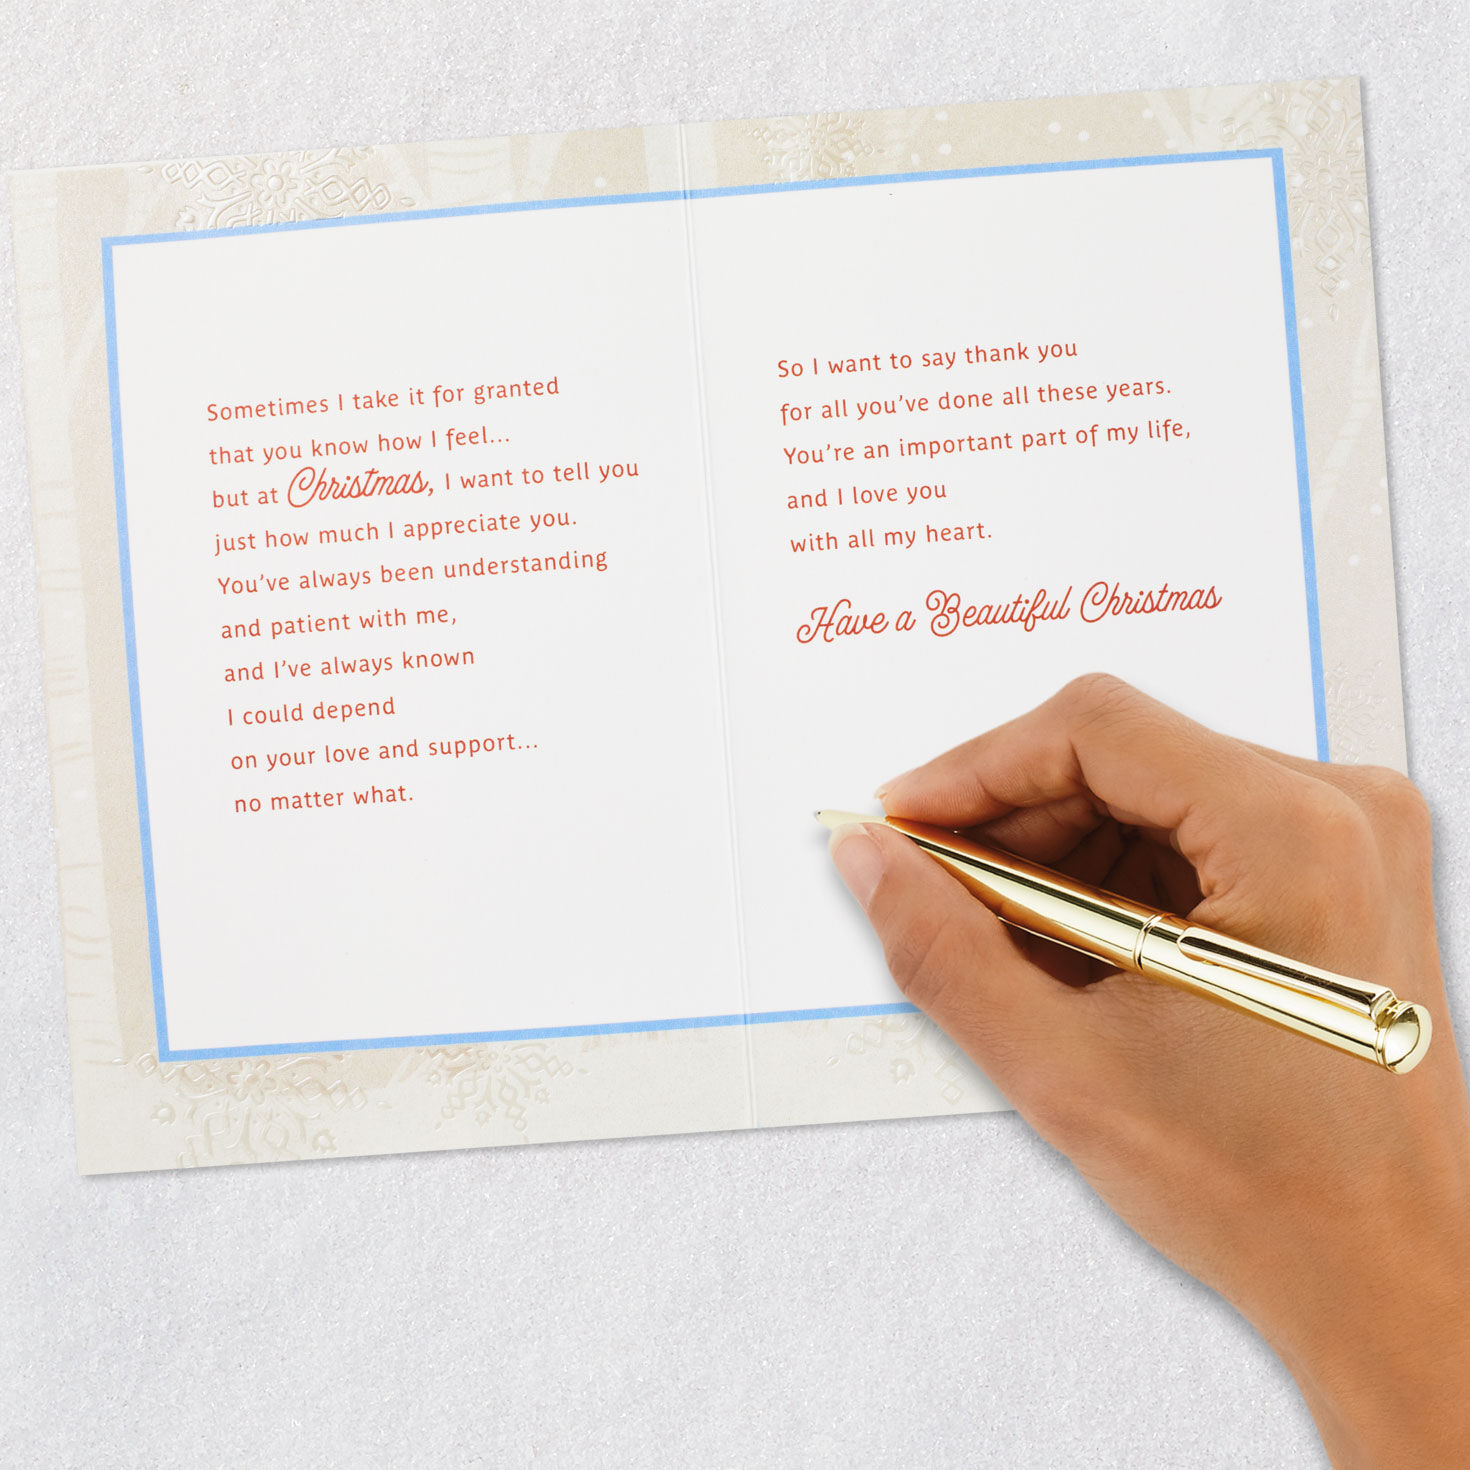 Sometimes I take it for granted
that you know how I feel...
but at Christmas, I want to tell you
just how much I appreciate you.
You've always been understanding
and patient with me,
and I've always known
I could depend
on your love and support...
no matter what.
So I want to say thank you
for all you've done all these years.
You're an important part of my life,
and I love you
with all my heart.
Have a Beautiful Christmas